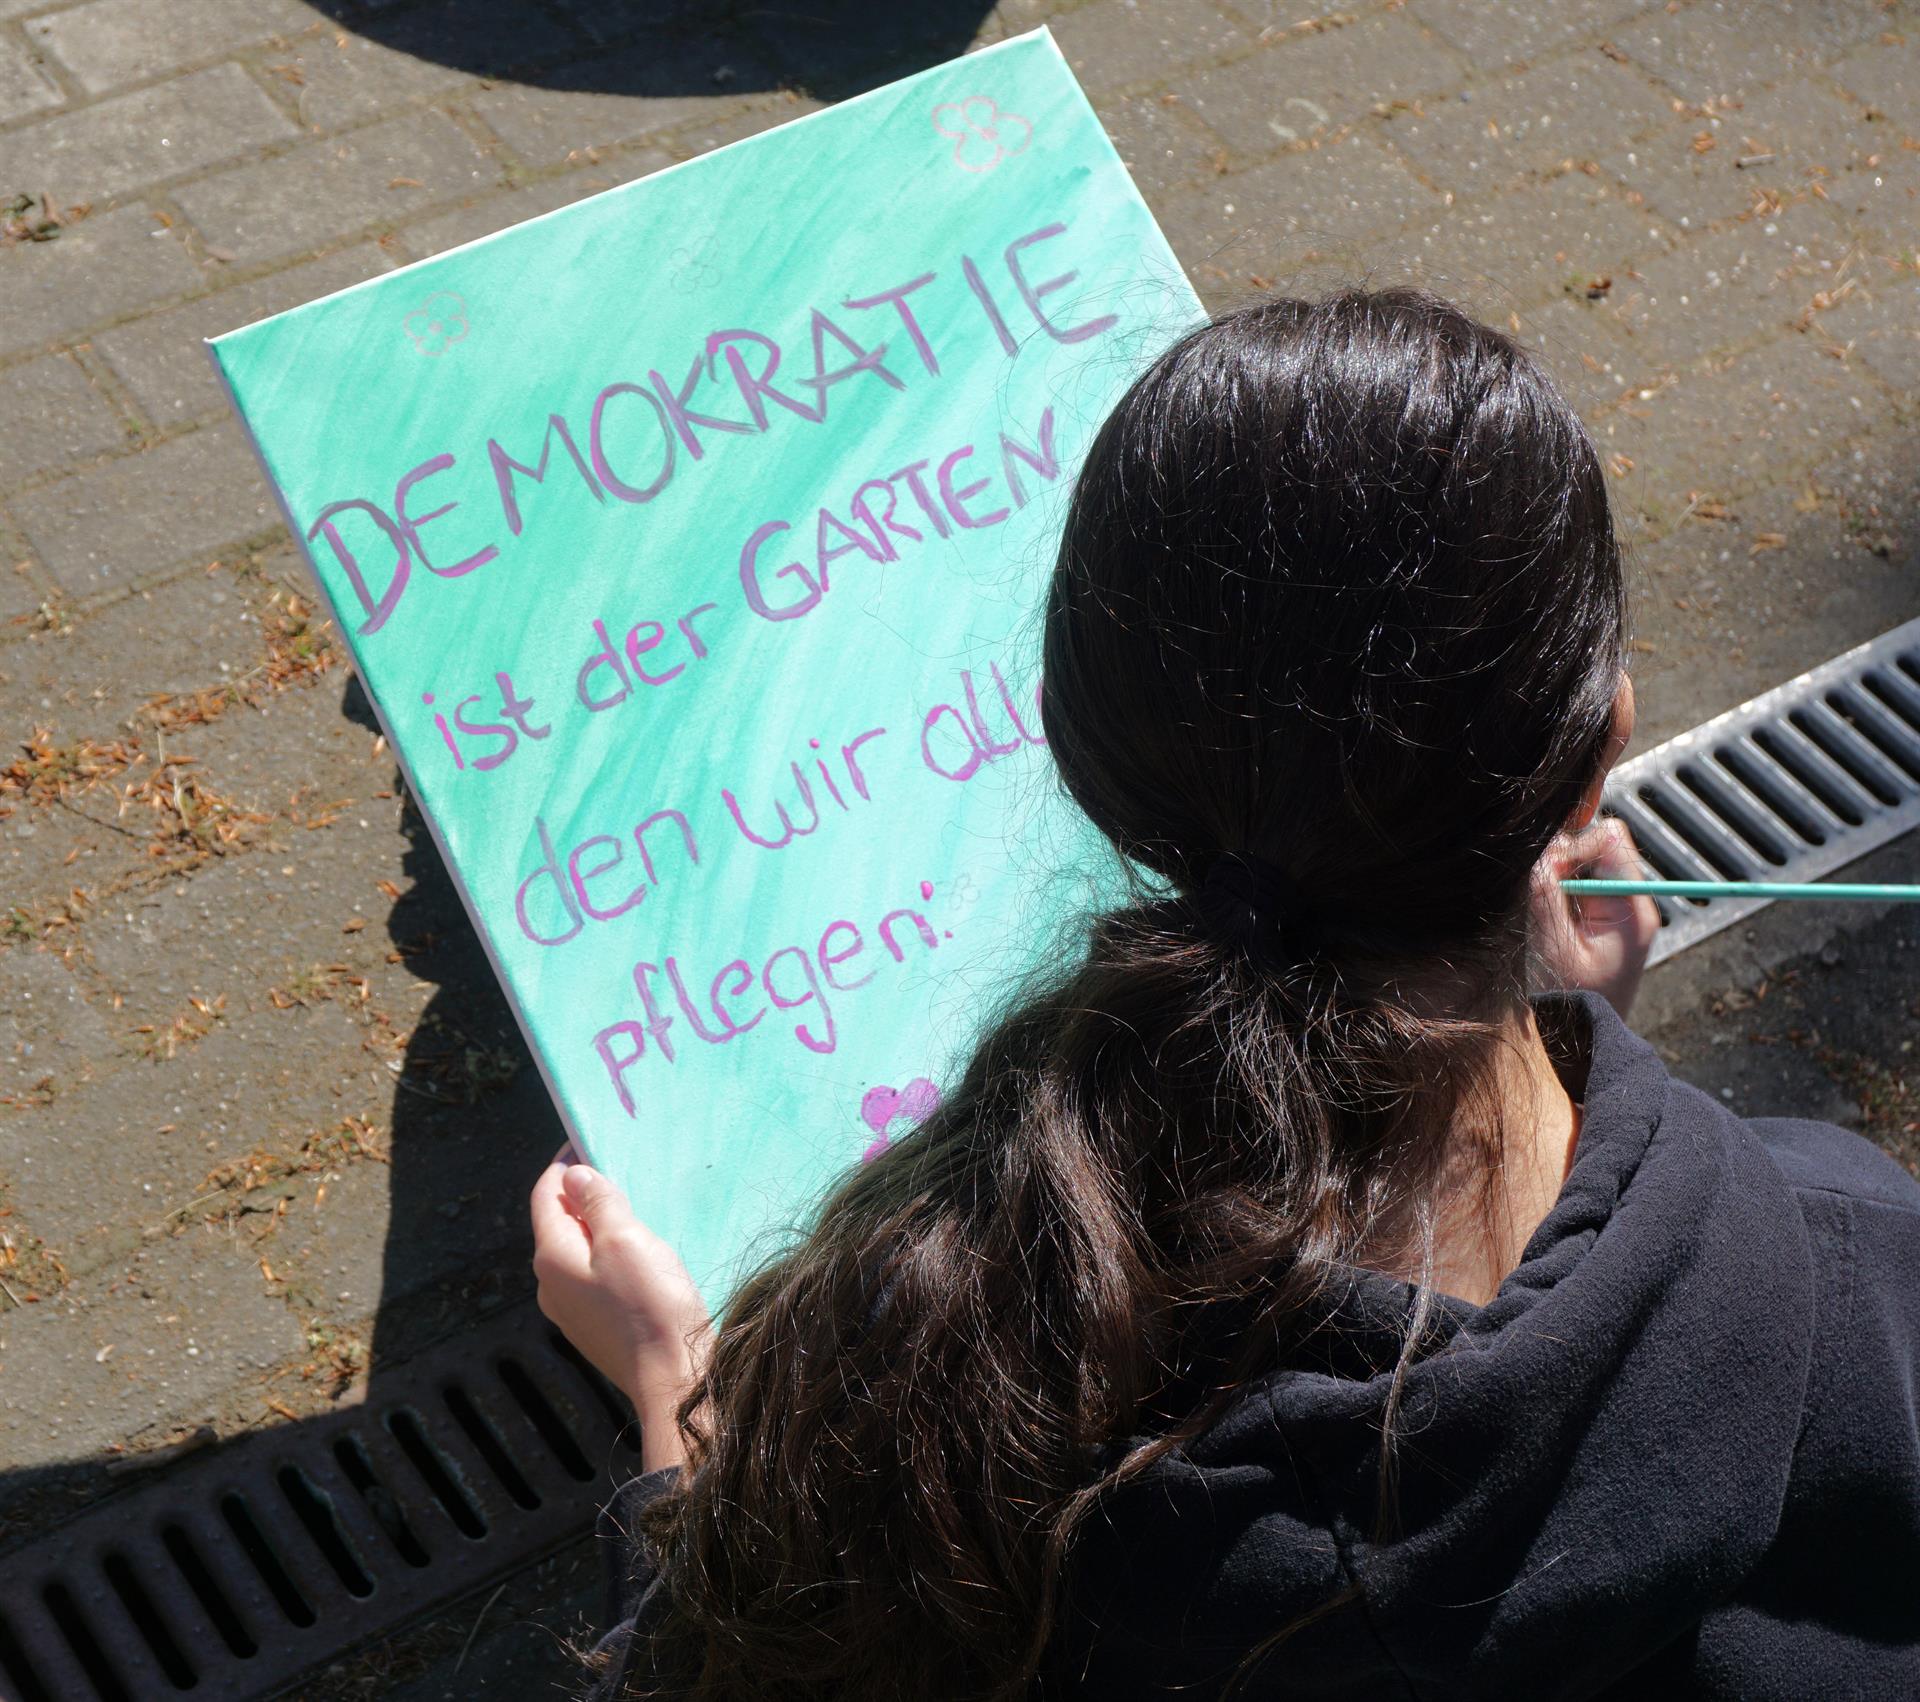 DEMOKRATIE
ist der GARTEN,
den wir alle
pflegen: